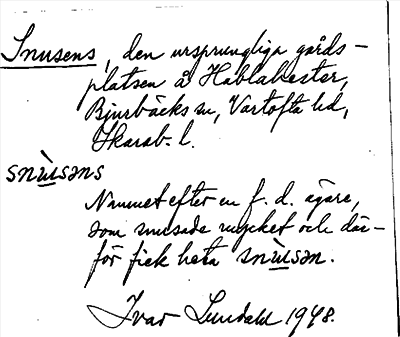 Snusens, den ursprungliga gårds-
platsen å Hablahester,
Bjurbäcks sn, Vartofta hd,
Skarab. l.
snùsəns
Namnet efter en f. d. ägare,
som snusade mycket och där-
för fick heta snùsən.
Ivar Lundahl 1948.